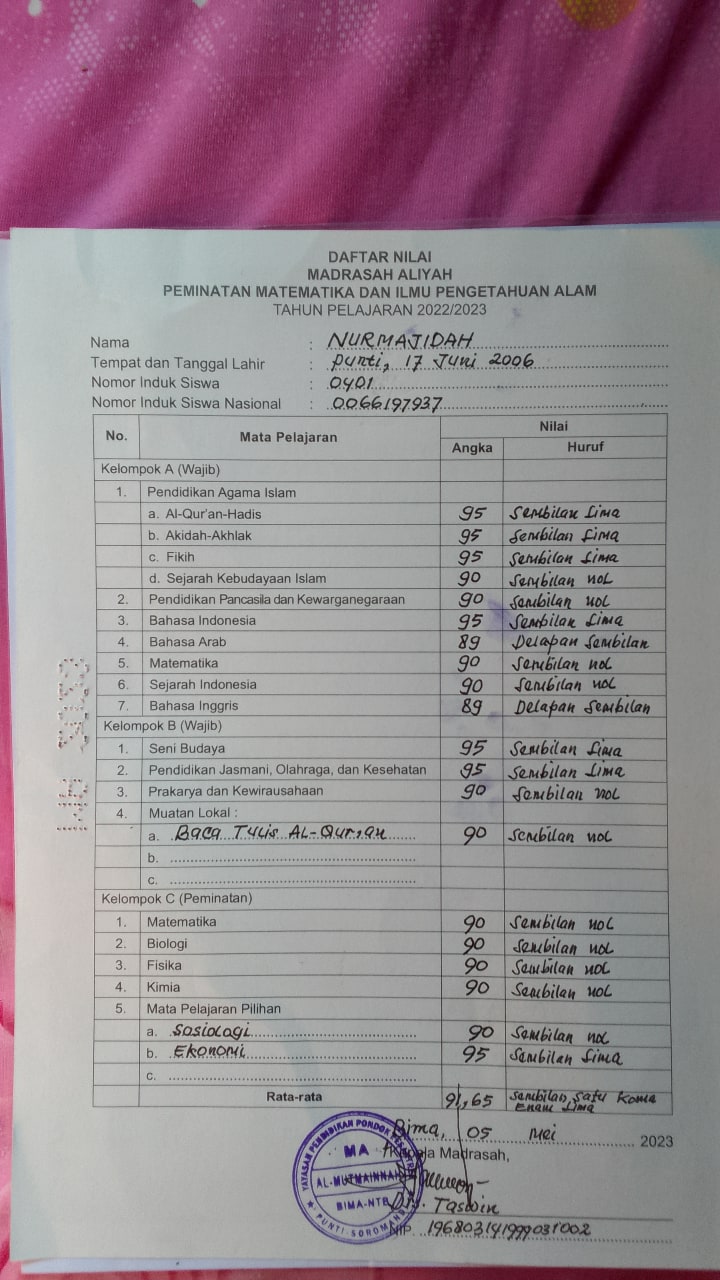 DAFTAR NILAI
MADRASAH ALIYAH
PEMINATAN MATEMATIKA DAN ILMU PENGETAHUAN ALAM
TAHUN PELAJARAN 2022/2023
Nama : NURMAJIDAH
Tempat dan Tanggal Lahir : punti, 17 Juni 2006
Nomor Induk Siswa : 0401
Nomor Induk Siswa Nasional : 0066197937
No. Mata Pelajaran Nilai
Angka Huruf
Kelompok A (Wajib)
1. Pendidikan Agama Islam
a. Al-Qur'an-Hadis 95 Sembilan Lima
b. Akidah-Akhlak 95 Sembilan Lima
c. Fikih 95 Sembilan Lima
d. Sejarah Kebudayaan Islam 90 Sembilan noL
2. Pendidikan Pancasila dan Kewarganegaraan 90 Sembilan noL
3. Bahasa Indonesia 95 Sembilan Lima
4. Bahasa Arab 89 Delapan Sembilan
5. Matematika 90 Sembilan noL
6. Sejarah Indonesia 90 Sembilan noL
7. Bahasa Inggris 89 Delapan Sembilan
Kelompok B (Wajib)
1. Seni Budaya 95 Sembilan Lima
2. Pendidikan Jasmani, Olahraga, dan Kesehatan 95 Sembilan Lima
3. Prakarya dan Kewirausahaan 90 Sembilan noL
4. Muatan Lokal :
a. Baca Tulis AL-Qur,an 90 Sembilan noL
b.
c.
Kelompok C (Peminatan)
1. Matematika 90 Sembilan noL
2. Biologi 90 Sembilan noL
3. Fisika 90 Sembilan noL
4. Kimia 90 Sembilan noL
5. Mata Pelajaran Pilihan
a. Sosiologi 90 Sembilan noL
b. Ekonomi 95 Sembilan Lima
c.
Rata-rata 91,65 Sembilan Satu Koma
Enam Lima
Bima, 05 Mei 2023
Kepala Madrasah,
YAYASAN PENDIDIKAN PONDOK
MA
AL-MUTMAINNAH
BIMA-NTB
PUNTI-SOROMANDI
Drs. Taswin
NIP. 196803141999031002